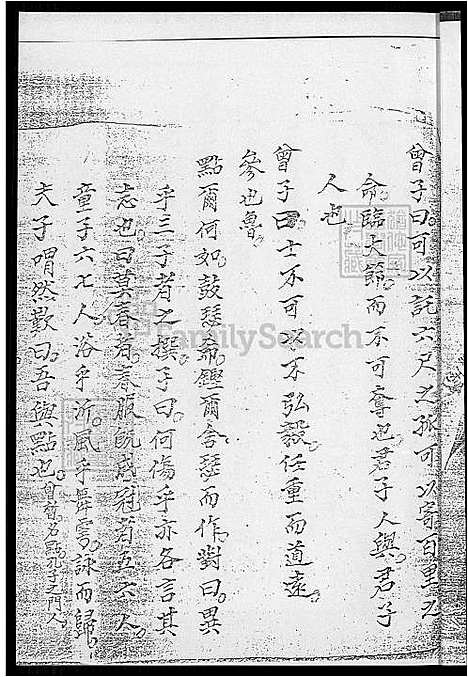 曾子曰可以託六尺之孤可以寄百里之
命臨大節而不可奪也君子人與君子
人也
曾子曰士不可以不弘毅任重而道遠
參也魯
點爾何如鼓瑟希鏗爾舍瑟而作對曰異
乎三子者之撰子曰何傷乎亦各言其
志也曰莫春者春服既成冠者五六人
童子六七人浴乎沂風乎舞雩詠而歸
夫子喟然歎曰吾與點也曾點名點孔子之門人
FamilySearch